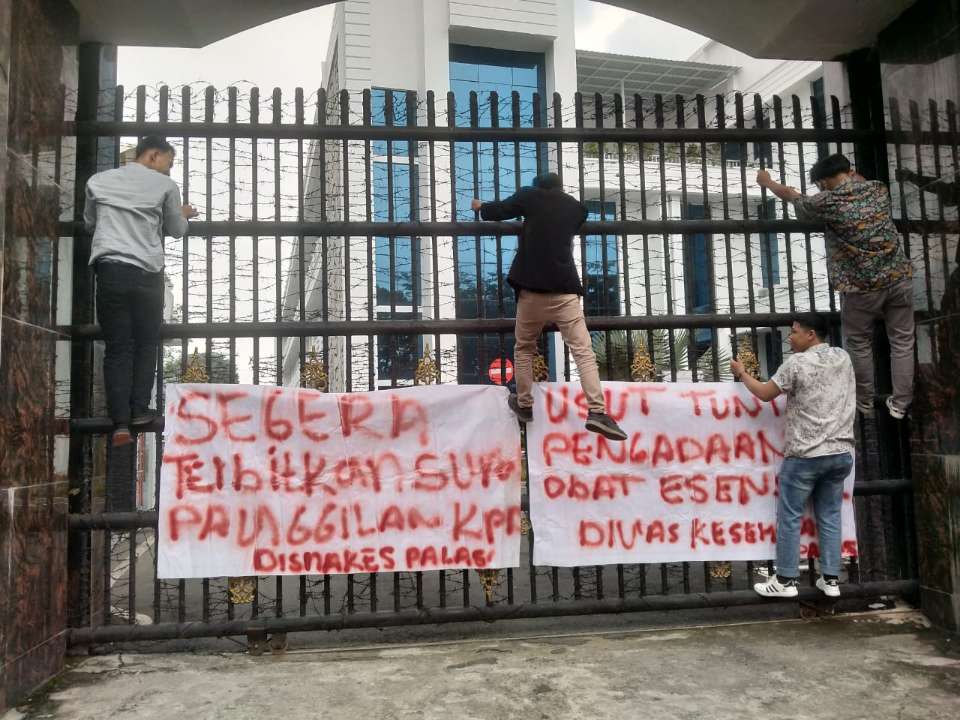 SEGERA
TERbitKan SUR
PANGGILAN KPD
DISNAKES PALAS
USUT TUNT
PENGADAAN
OBAT ESEN
DINAS KESEH
PALAS